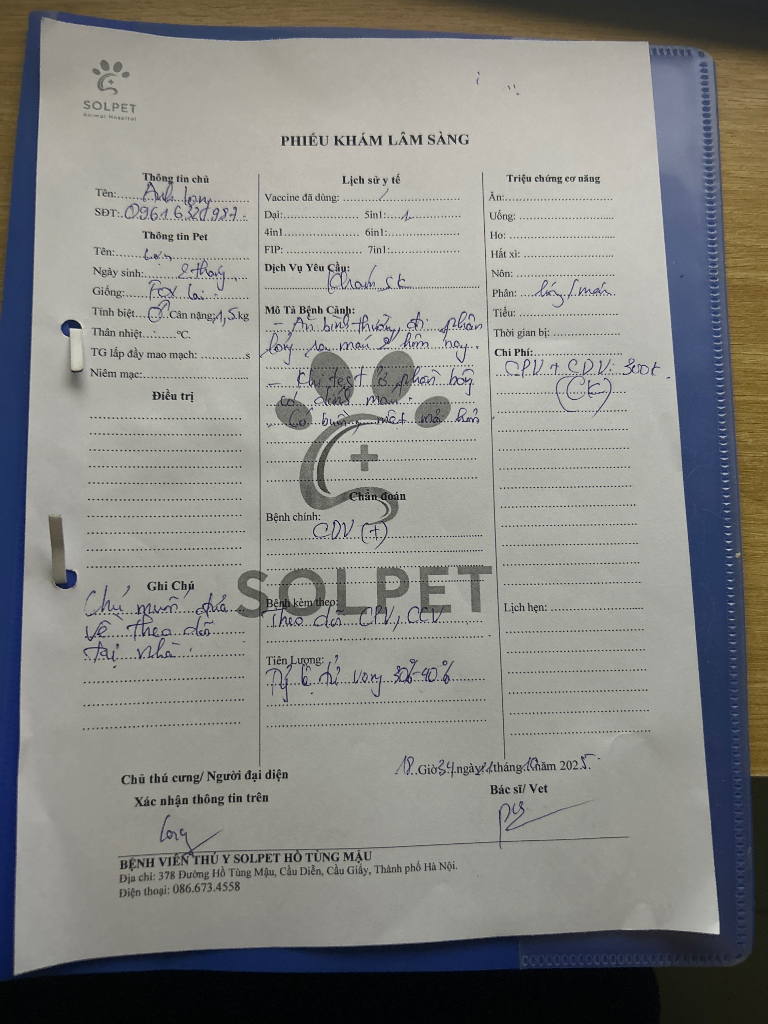 SOLPET
Animal Hospital
PHIẾU KHÁM LÂM SÀNG
Thông tin chủ
Tên: Anh long
SĐT: 0961632987
Thông tin Pet
Tên:
Ngày sinh: 2 tháng
Giống: Fox lai
Tính biệt: Cân nặng: 1,5 kg
Thân nhiệt: °C.
TG lấp đầy mao mạch: s
Niêm mạc:
Điều trị
Ghi Chú
Chủ muốn đưa
về theo dõi
tại nhà.
Lịch sử y tế
Vaccine đã dùng: /
Dại: 5in1: 1
4in1 6in1:
FIP: 7in1:
Dịch Vụ Yêu Cầu:
Khám sk
Mô Tả Bệnh Cảnh:
- Ăn bình thường, đi phân
lỏng ra máu 2 hôm nay.
- Khi test
có dính máu.
Có
Chẩn đoán
Bệnh chính:
CDV (+)
SOLPET
Bệnh kèm theo:
Theo dõi CPV, CCV
Tiên Lượng:
Tỷ lệ tử vong
Triệu chứng cơ năng
Ăn:
Uống:
Ho:
Hắt xì:
Nôn:
Phân: lỏng/máu
Tiểu:
Thời gian bị:
Chi Phí:
CPV + CDV: 300k
(CK)
Lịch hẹn:
18 Giờ 34 ngày tháng 10 năm 2025
Chủ thú cưng/ Người đại diện
Xác nhận thông tin trên
Bác sĩ/ Vet
long
BỆNH VIỆN THÚ Y SOLPET HỒ TÙNG MẬU
Địa chỉ: 378 Đường Hồ Tùng Mậu, Cầu Diễn, Cầu Giấy, Thành phố Hà Nội.
Điện thoại: 086.673.4558